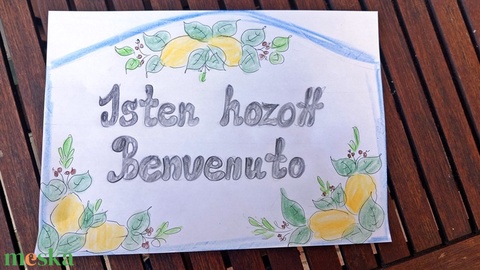 Isten hozott
Benvenuto
meska